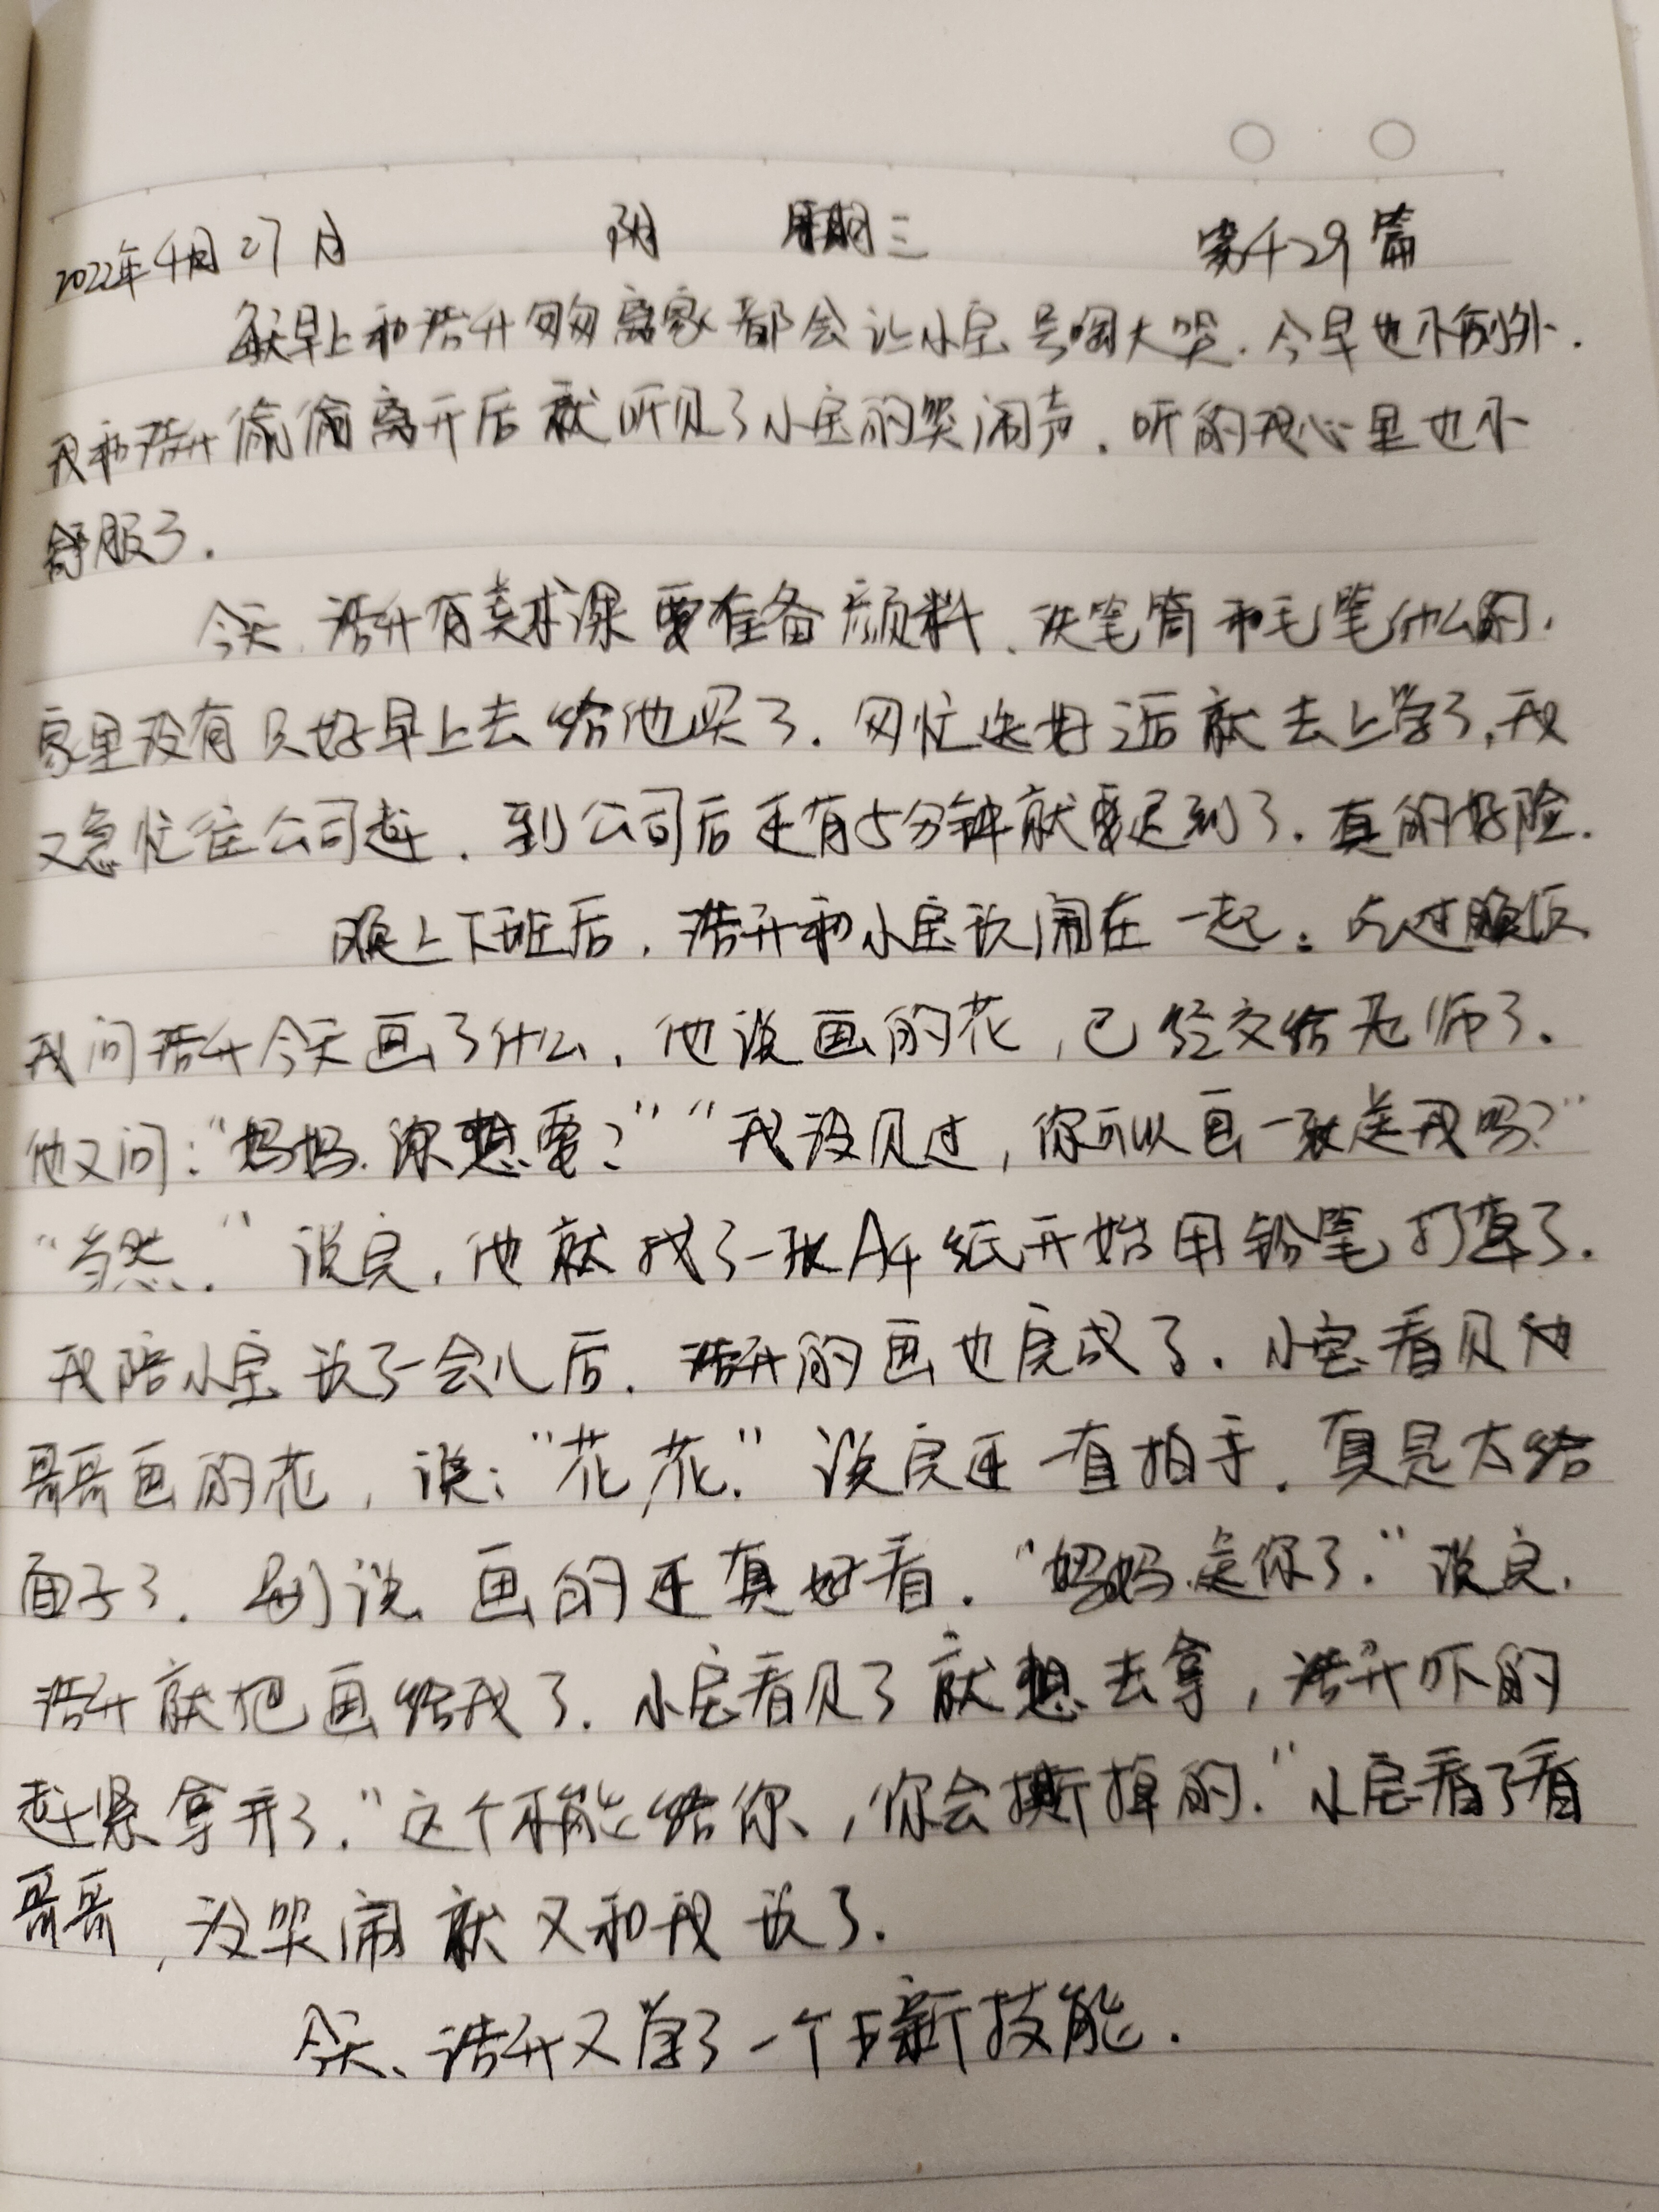 2022年4月27日 阴 星期三 第429篇
每天早上和浩升匆匆离家都会让小宝号啕大哭.今早也不例外.
我和浩升偷偷离开后就听见了小宝的哭闹声.听的我心里也不
舒服了.
今天.浩升有美术课要准备颜料、洗笔筒和毛笔什么的.
家里没有只好早上去给他买了.匆忙送好后就去上学了,我
又急忙往公司赶.到公司后还有5分钟就要迟到了.真的好险.
晚上下班后,浩升和小宝玩闹在一起.吃过晚饭
我问浩升今天画了什么,他说画的花,已经交给老师了.
他又问:"妈妈.你想要?""我没见过,你可以画一张送我吗?"
"当然."说完,他就找了一张A4纸开始用铅笔打草了.
我陪小宝玩了一会儿后.浩升的画也完成了.小宝看见
哥哥画的花,说:"花花."说完还一直拍手.真是太给
面子了.别说画的还真好看."妈妈送你了."说完.
浩升就把画给我了.小宝看见了就想去拿,浩升吓的
赶紧拿开了."这个不能给你,你会撕掉的."小宝看了看
哥哥,没哭闹就又和我玩了.
今天、浩升又学了一个新技能.